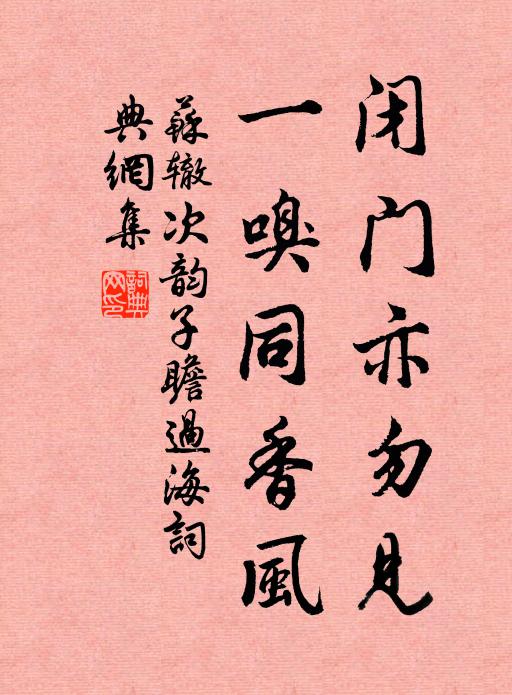 闭门亦勿见
一嗅同香風
蘇辙次韵子瞻過海詞
典網集
詞典网印